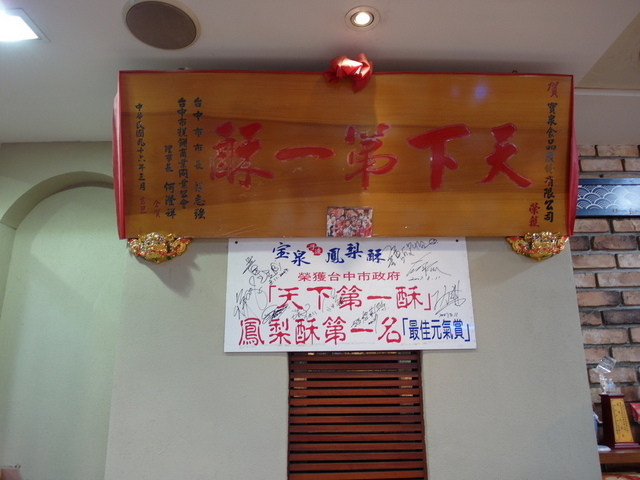 賀
寶泉食品有限公司
榮獲
天下第一酥
台中市市長
台中市糕餅商業同業公會
理事長 何澄祥
中華民國九十六年三月
宝泉 鳳梨酥
榮獲台中市政府
「天下第一酥」
鳳梨酥第一名「最佳元氣賞」